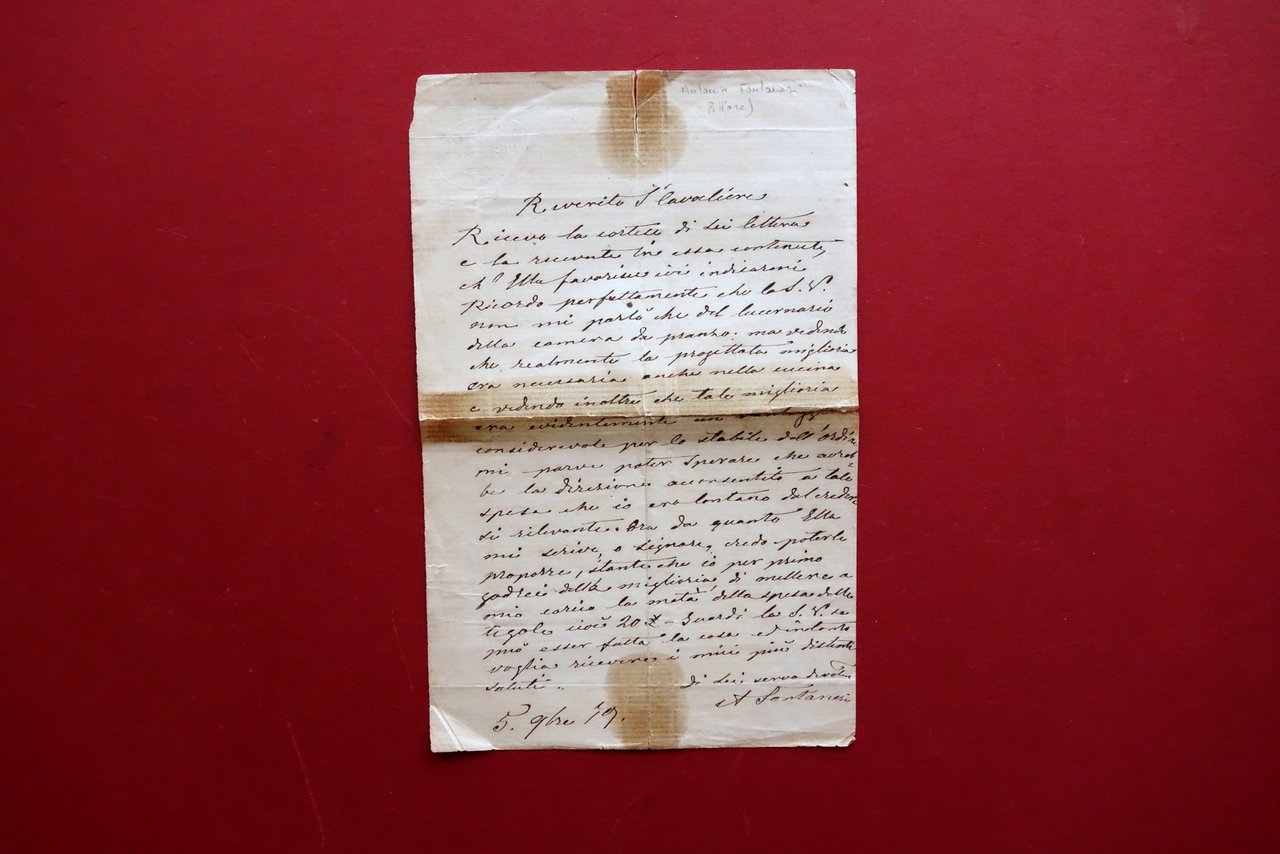 Antonio Fontanesi
Pittore)
Riverito Sr Cavaliere
Ricevo la cortese di Lei lettera
e la ricevuta in essa contenuta,
ch' Ella favorisce ivi indicarmi
Ricordo perfettamente che la S. V.
non mi parlò che del lucernario
della camera da pranzo. ma vedendo
che realmente la progettata miglioria
era necessaria anche nella cucina
e vedendo inoltre che tale miglioria
era evidentemente un vantaggio
considerevole per lo stabile dell'Ordine
mi parve poter sperare che avreb-
be la Direzione acconsentito a tale
spesa che io ero lontano dal credere
sì rilevante. Ora da quanto Ella
mi scrive, o Signore, credo poterle
proporre, stante che io per primo
godrei della miglioria, di mettere a
mio carico la metà della spesa delle
tegole cioè 20 £ - Guardi la S. V. se
può esser fatta la cosa ed intanto
voglia ricevere i miei più distinti
saluti.
Di Lei servo devoto
A Fontanesi
5. 9bre